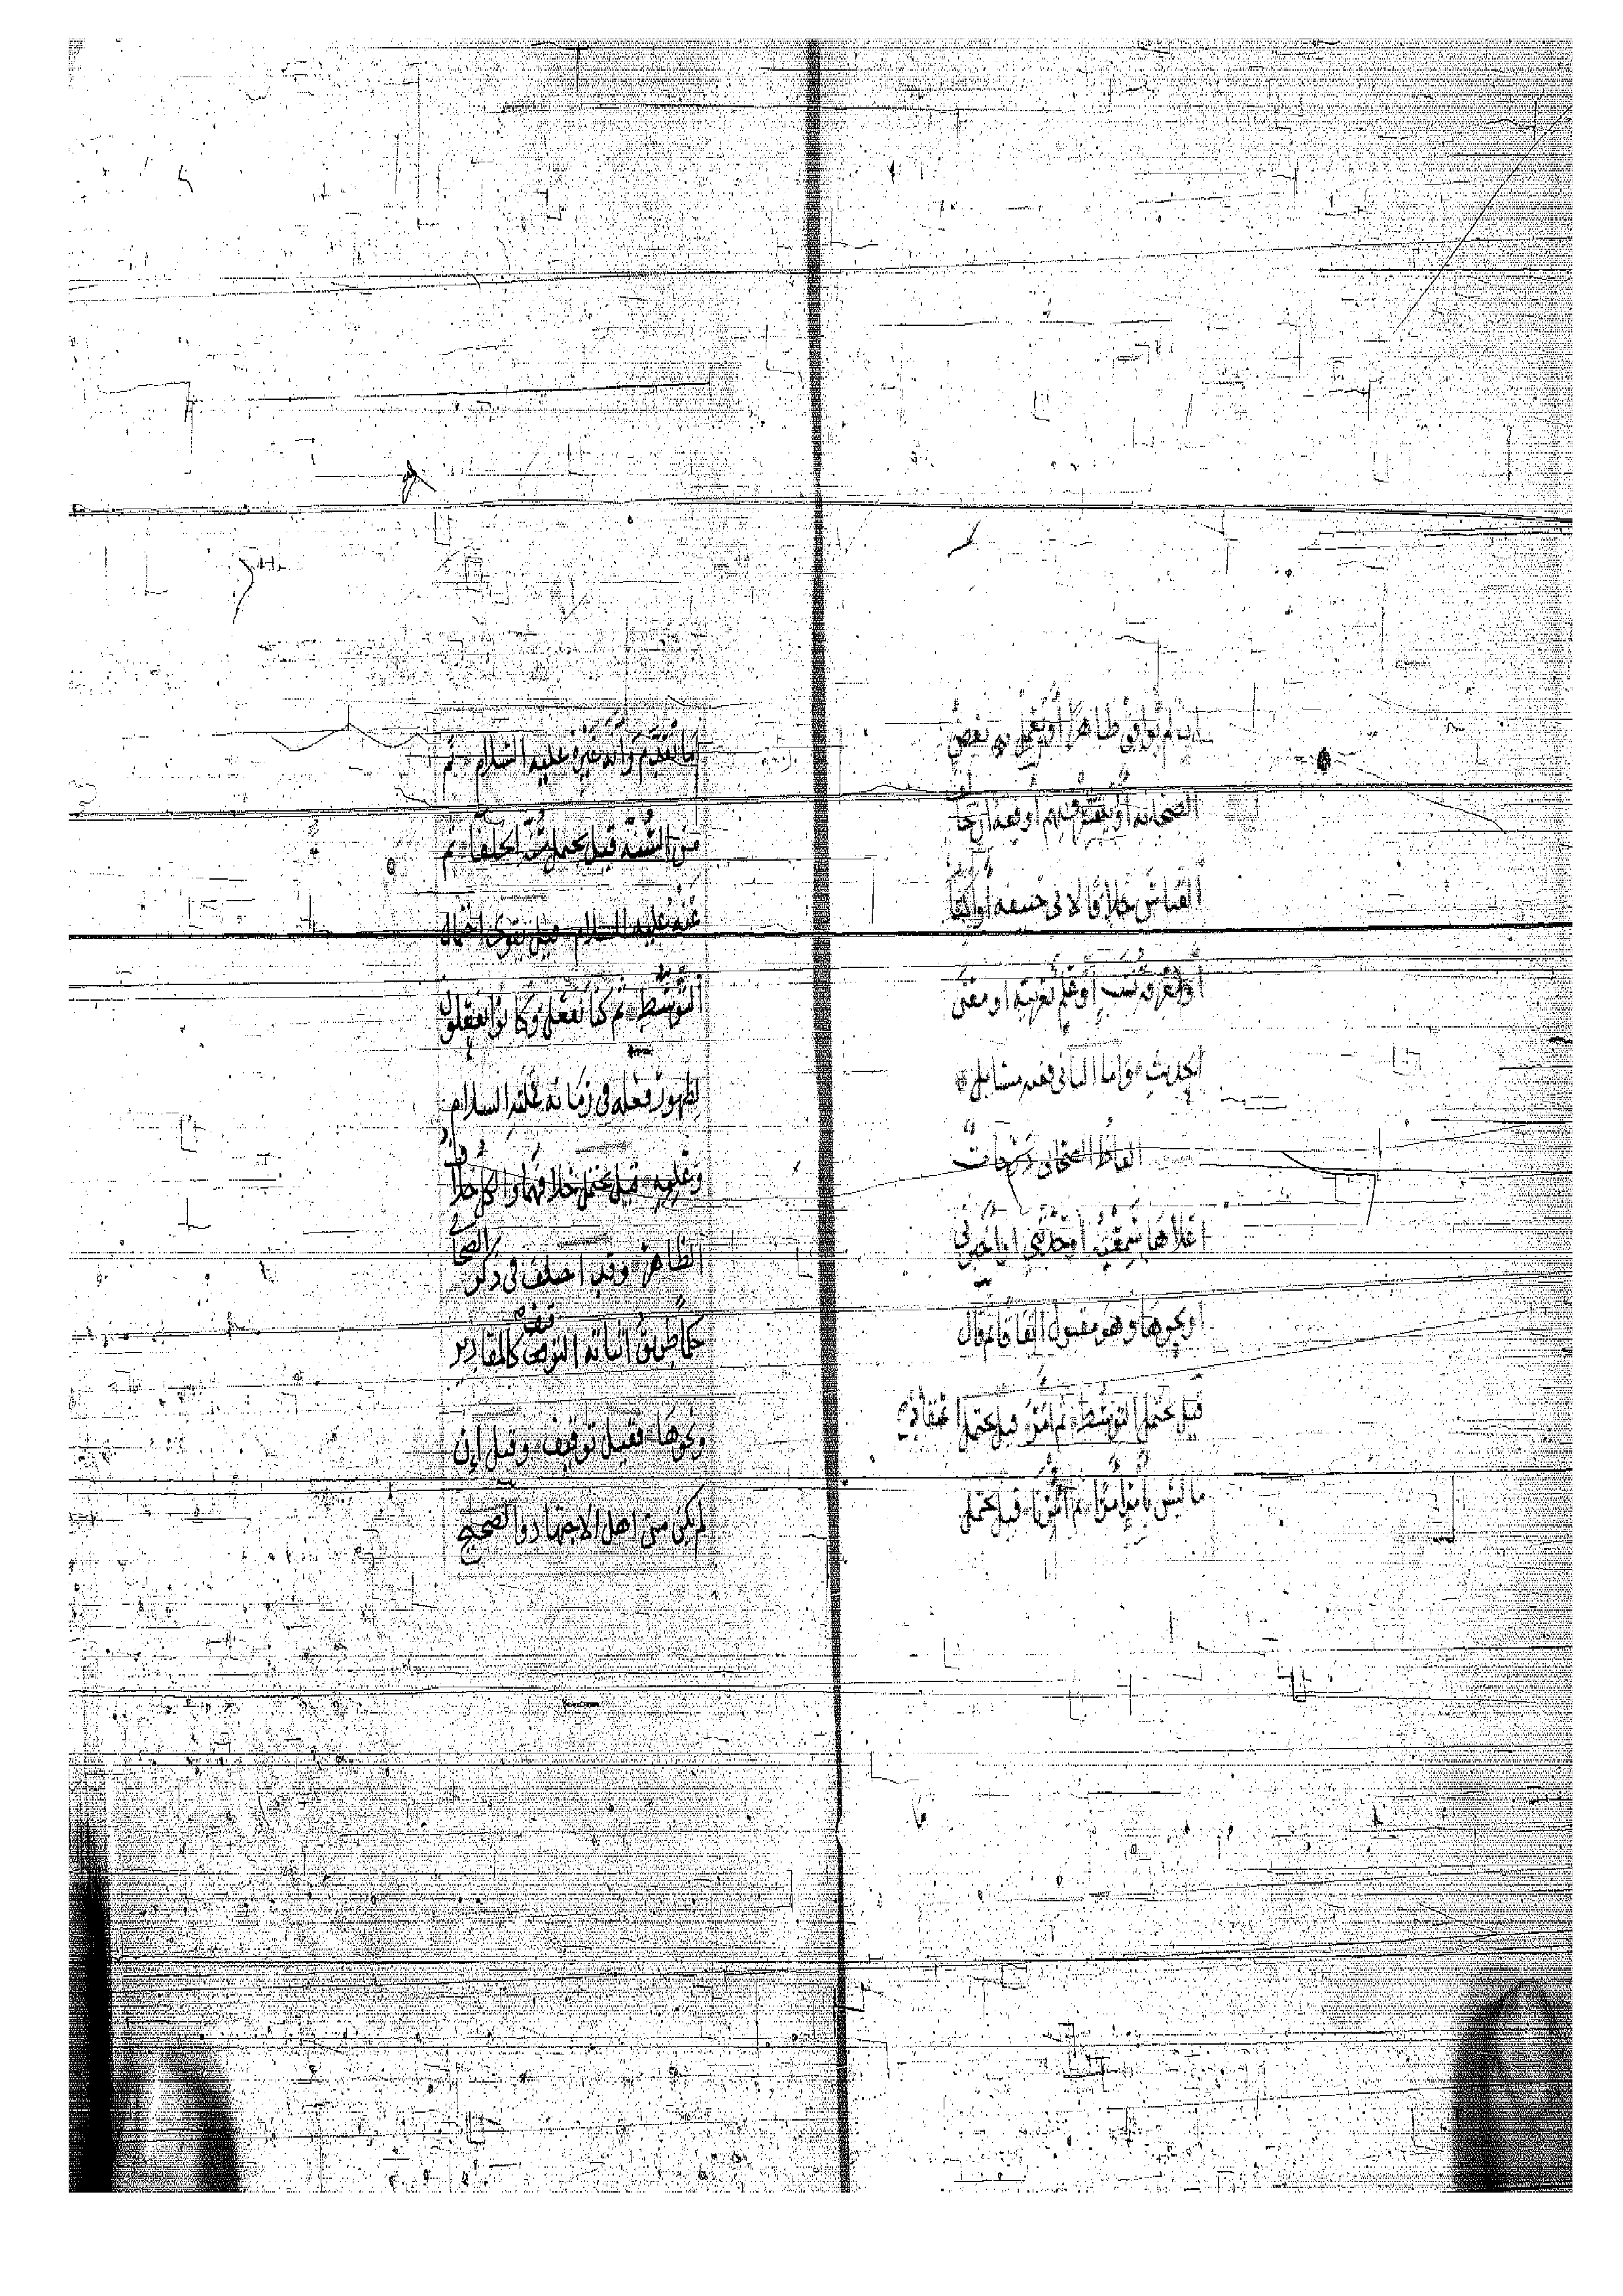 ان لم يوافق ظاهرا أو يعمل به بعض
الصحابة أو فقيههم أو فيه ان خالف
القياس خلافا لابي حنيفة أو
أو نسب أو علم بعربية او معنى
الحديث واما الثاني ففيه مسايل
الفاظ الصحابي درجات
اعلاها سمعته أو حدثني او اخبرني
او نحوها وهو مقبول اتفاقا ثم قال
قيل يحتمل التوسط ثم أمر قيل يحتمل اعتقاد
ما ليس بأمر أمرا ثم أمرنا قيل يحتمل
ما تقدم وانه غيره عليه السلام ثم
من السنة قيل يحتمل سنة الخلفا ثم
عنه عليه السلام قيل يقوى احتمال
التوسط ثم كنا نفعل وكانوا يفعلون
لظهور فعله في زمانه عليه السلام
وعلمه قيل يحتمل خلافهما والكل خلاف
الظاهر وقد اختلف في ذكر الصحابي
حكما طريق اثباته التوقيف كالمقادير
ونحوها فقيل توقيف وقيل إن
لم يكن من اهل الاجتهاد والصحيح